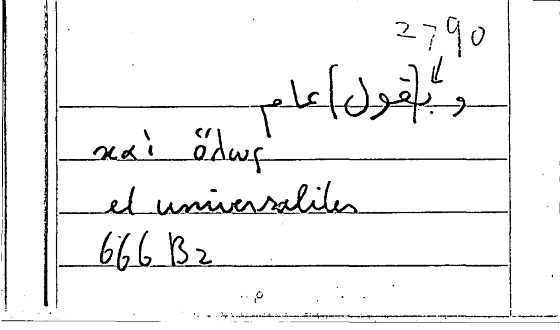 2790
وبـ[قول] عام
καὶ ὅλως
et universaliter
666 B2